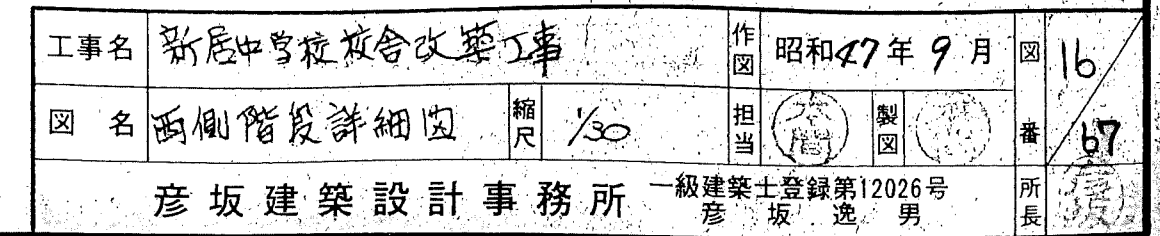 工事名 新居中学校校舎改築工事 作図 昭和47年9月 図番 16/67
図名 西側階段詳細図 縮尺 1/30 担当 本間 製図
彦坂建築設計事務所 一級建築士登録第12026号 所長
彦坂逸男